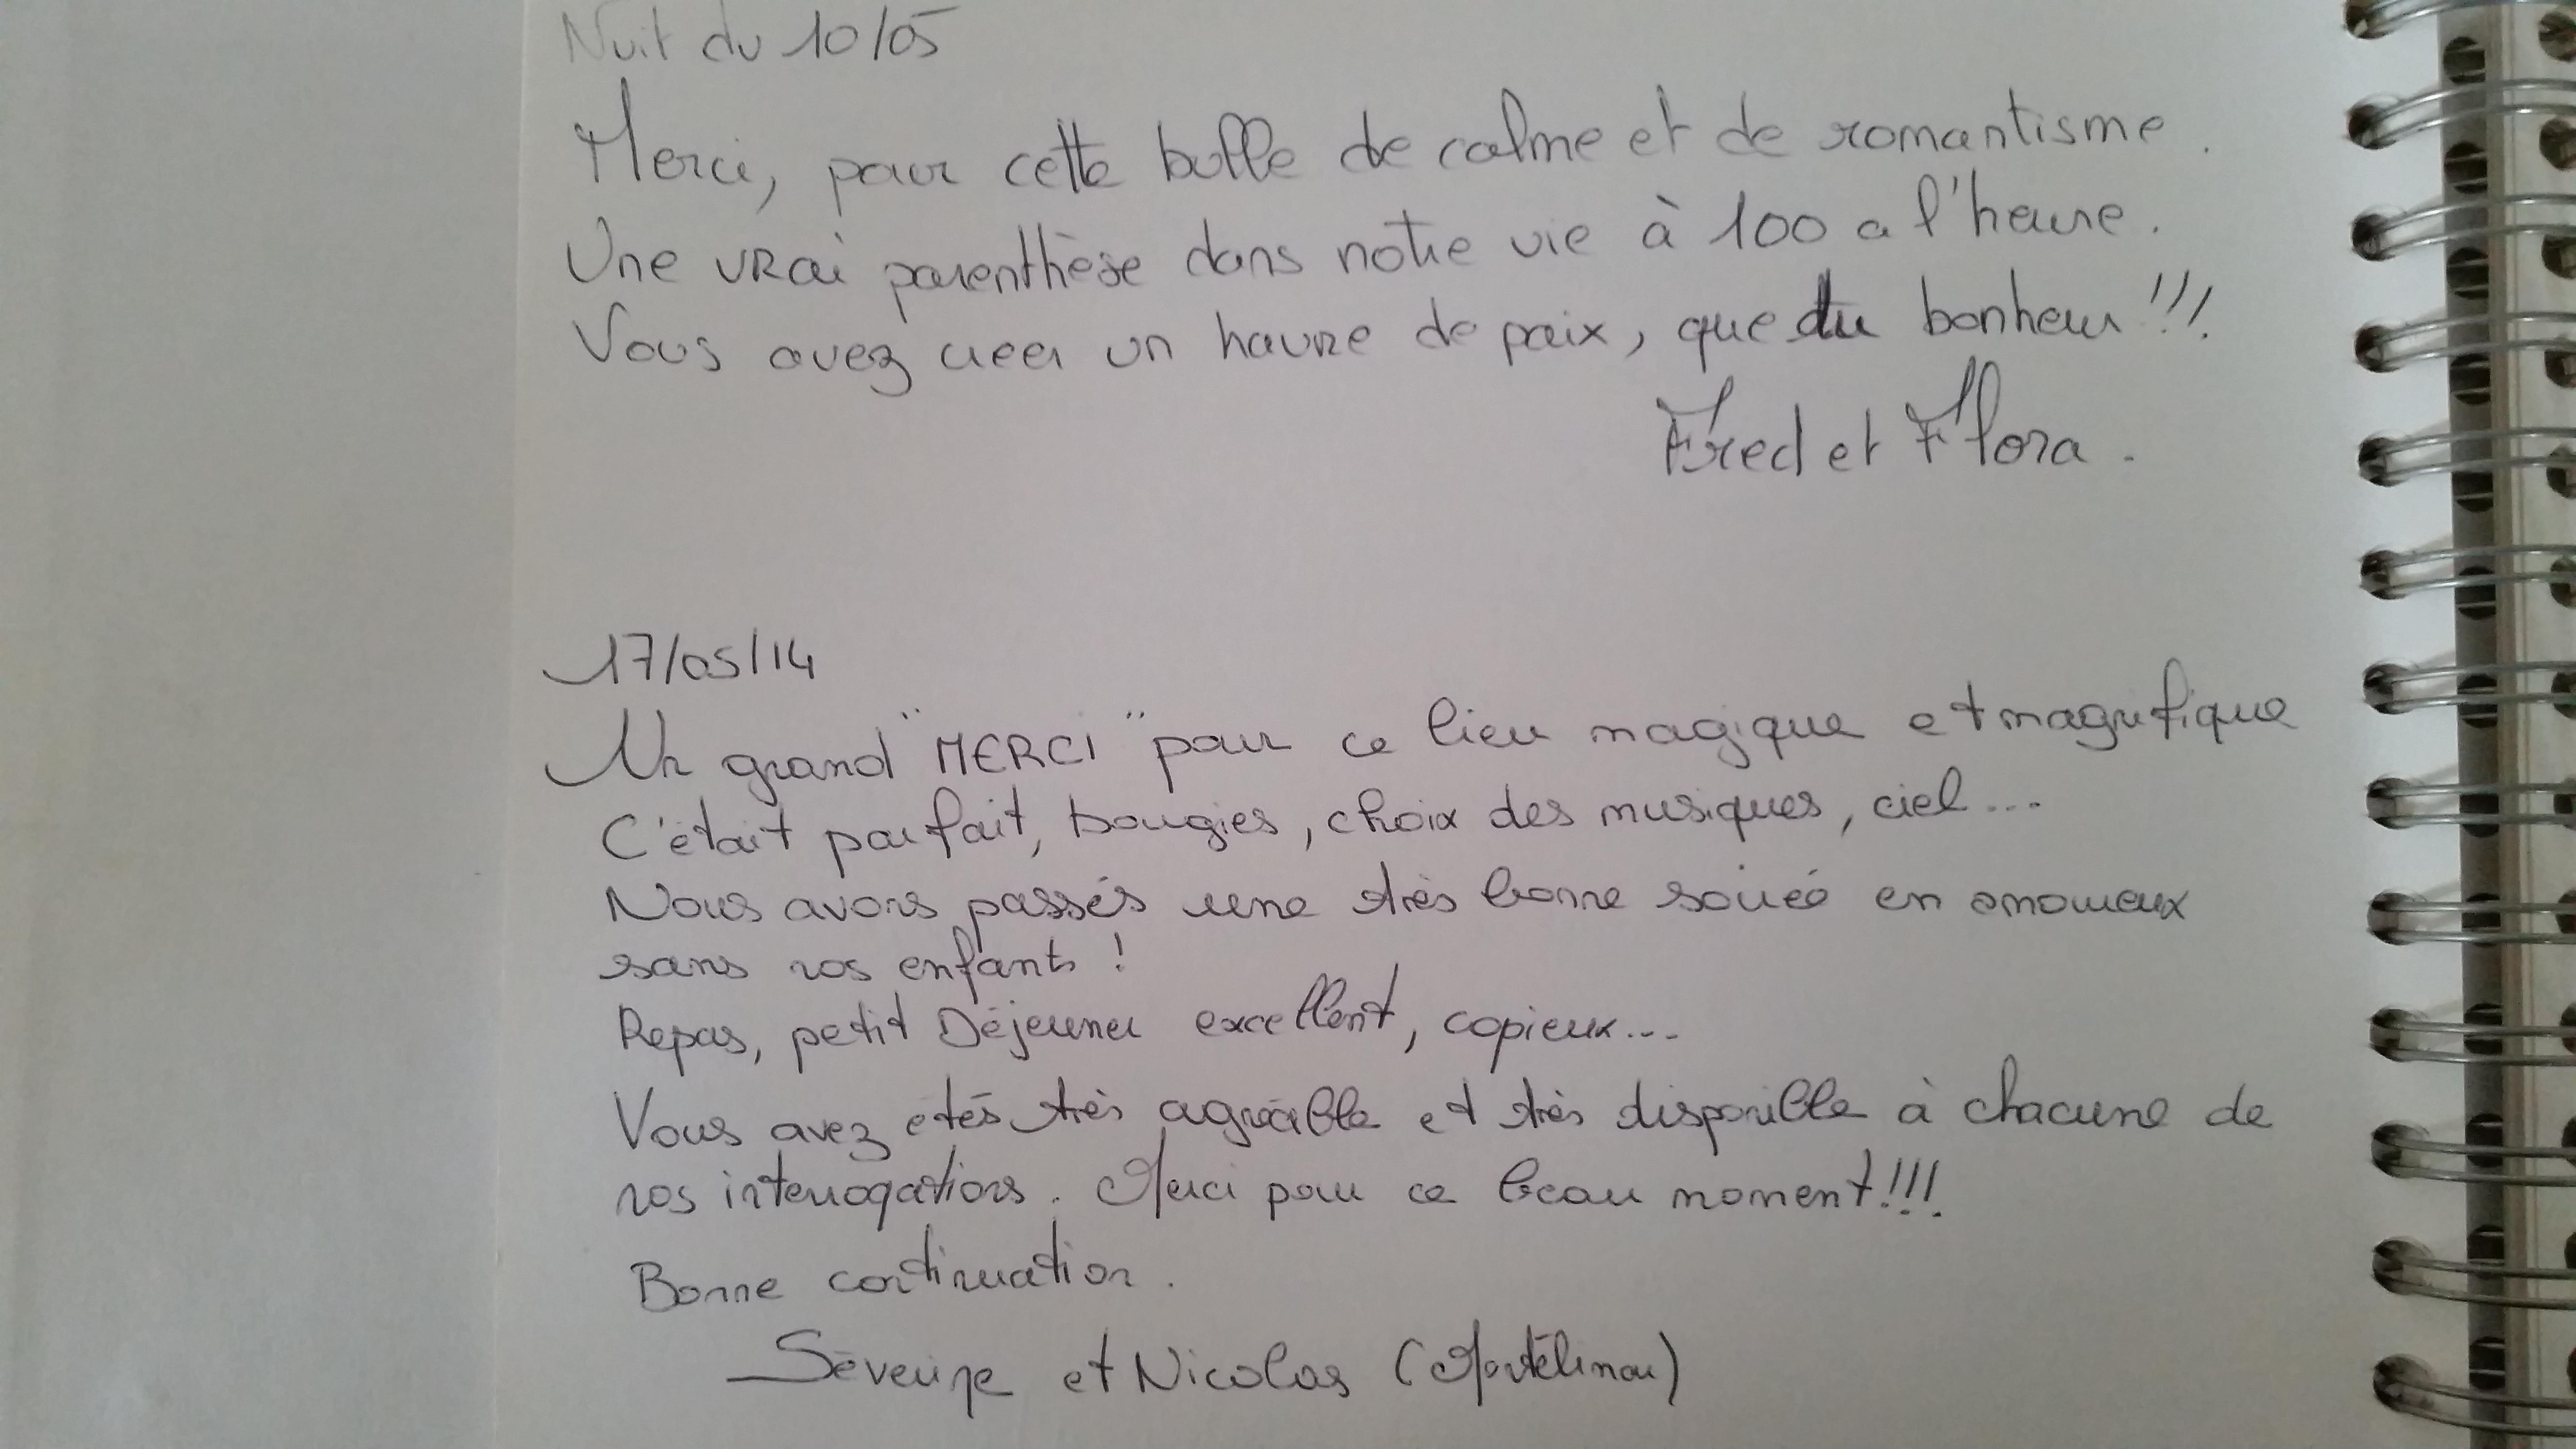 Nuit du 10/05
Merci, pour cette bulle de calme et de romantisme.
Une vrai parenthèse dans notre vie à 100 a l'heure.
Vous avez creer un havre de paix, que du bonheur!!!
Fred et Flora.
17/05/14
Un grand "MERCI" pour ce lieu magique et magnifique
C'était parfait, bougies, choix des musiques, ciel...
Nous avons passés une très bonne soirée en amoureux
sans nos enfants !
Repas, petit Déjeuner excellent, copieux...
Vous avez étés très agréable et très disponible à chacune de
nos interrogations. Merci pour ce beau moment!!!
Bonne continuation.
Séverine et Nicolas (Montélimar)